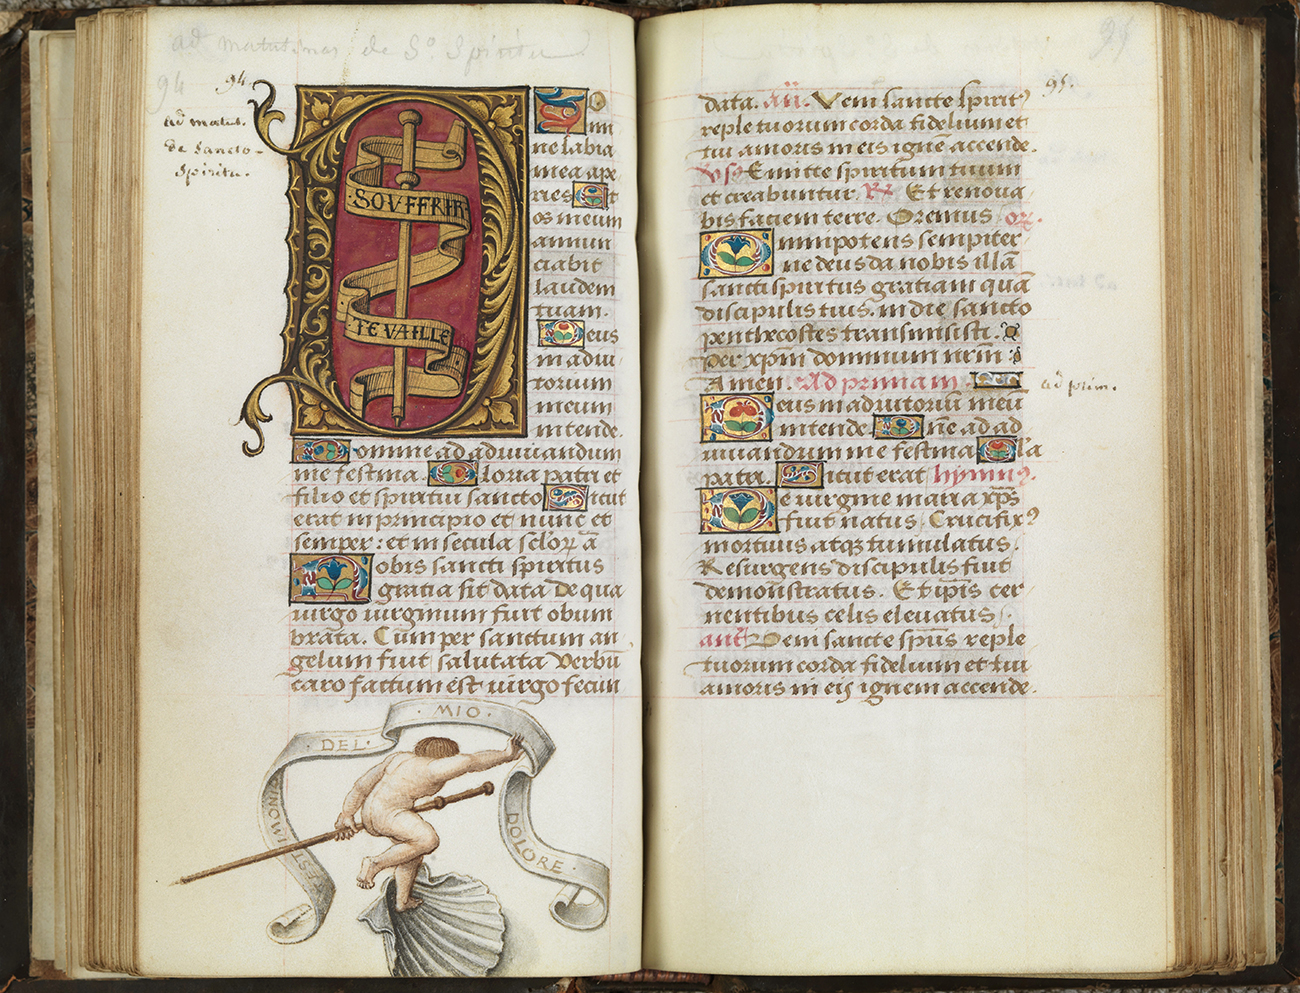 ad matutinas de Sº Spiritu
94
94.
ad matut.
de Sancto
Spiritu.
SOVFFRIR
TE VAILLE
D
m
ne labia
mea ape
ries Et
os meum
annun
ciabit
laudem
tuam.
Deus
in adiu
torium
meum
intende.
Domine ad adiuuandum
me festina. Gloria patri et
filio et spiritui sancto Sicut
erat in principio et nunc et
semper: et in secula sc̄lorꝝ ā
Nobis sancti spiritus
gratia sit data De qua
uirgo uirginum fuit obum
brata. Cūm per sanctum an
gelum fuit salutata Verbū
caro factum est uirgo fecun
TESTIMONIA
DEL·
·MIO·
DOLORE
95
95.
data. añ. Veni sancte spirit⁹
reple tuorum corda fidelium et
tui amoris in eis ignē accende.
Emitte spiritum tuum
et creabuntur. ℟ Et renoua
bis faciem terre. Oremus. oꝛ.
Omnipotens sempiter
ne deus da nobis illā
sancti spiritus gratiam quā
discipulis tuis. in die sancto
penthecostes transmisisti.
Per xp̄m dominum nr̄m
Amen. Ad primam.
ad prim.
Deus in adiutoriū meū
intende Domine ad ad
iuuandum me festina Gl̄a
patri. Sicut erat hymnus.
De uirgine maria xp̄s
fuit natus. Crucifix⁹
mortuus atqꝫ tumulatus.
Resurgens discipulis fuit
demōnstratus. Et ip̄is cer
nentibus celis eleuatus.
añt Veni sancte sp̄us reple
tuorum corda fidelium et tui
amoris in eis ignem accende.